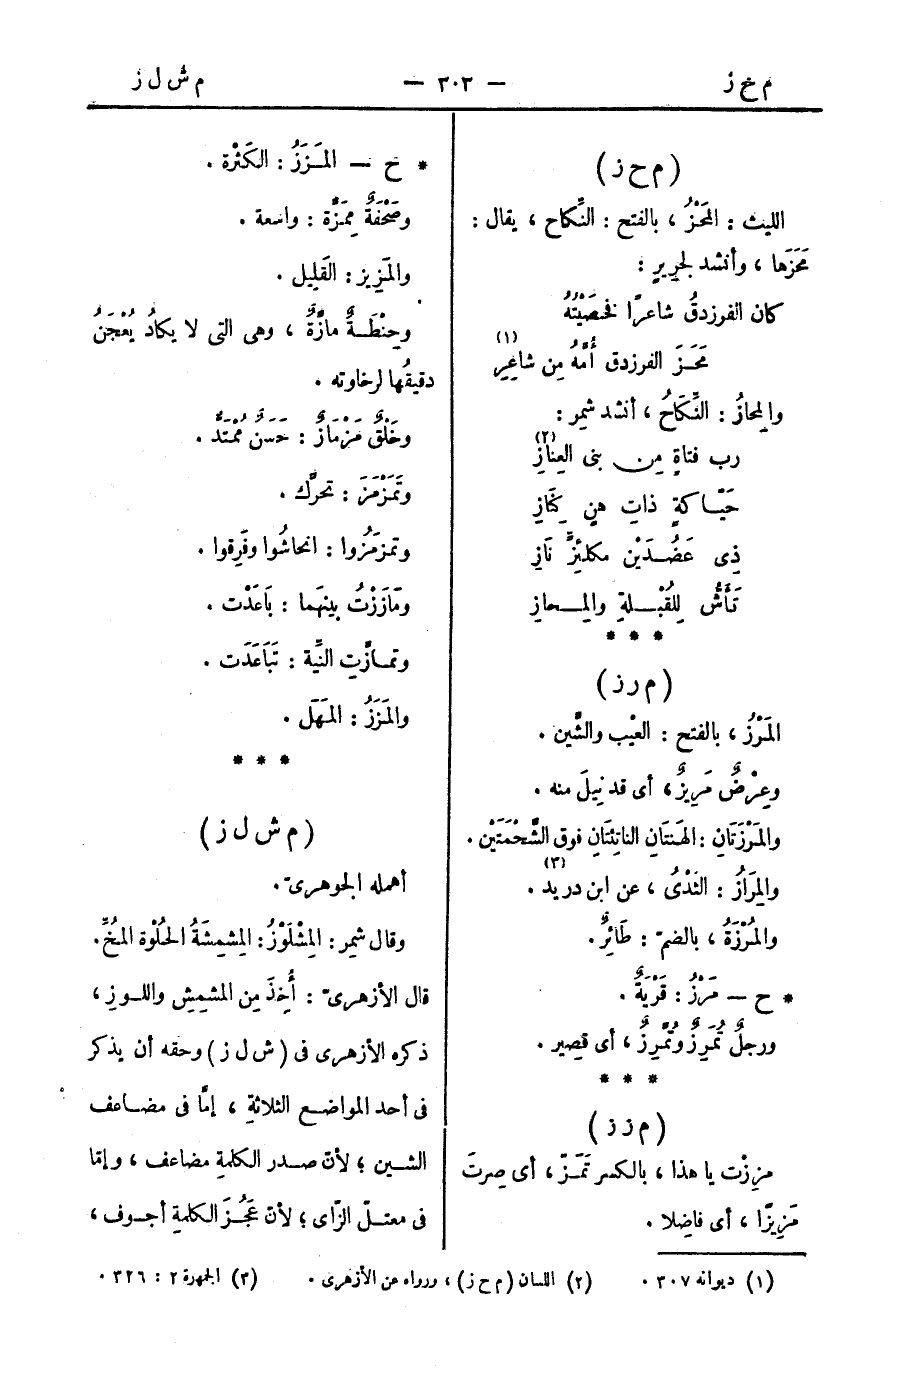 م خ ز
— ٣٠٢ —
م ش ل ز
(م ح ز)
الليث : المَحْزُ ، بالفتح : النِّكاح ، يقال :
مَحَزَها ، وأنشد لجريرٍ :
كان الفرزدقُ شاعرًا فخصَيْتُهُ
مَحَـزَ الفرزدق أُمَّهُ مِن شاعِرِ (١)
والمِحازُ : النِّكاحُ ، أنشد شمِر :
رب فتاةٍ مِن بنى العِنازِ (٢)
حَيّاكةٍ ذاتِ هنٍ كِنَازِ
ذِى عَضُـدَيْن مكلئِزٍّ نَازِ
تَأَشُّ لِلقُبْـلةِ والمِـحازِ
* * *
(م ر ز)
المَرْزُ ، بالفتح : العَيْب والشَّين .
وعِرْضٌ مَرِيزٌ ، أى قد نِيلَ منه .
والمَرْزَتَانِ : الهَنتَانِ الناتِئتَانِ فوق الشَّحْمَتَيْن .
والمِرَازُ : الثَدْىُ ، عن ابن دريد (٣) .
والمُرْزَةُ ، بالضمّ : طَائِرٌ .
* ح — مَرْزُ : قَرْيَةٌ .
ورجلٌ تُمَرِزٌ وتُمَّرِزٌ ، أى قصير .
* * *
(م ز ز)
مزِزْت يا هذا ، بالكسر تَمَزّ ، أى صِرتَ
مَزِيزًا ، أى فاضِلا .
* ح — المَـزَزُ : الكَثْرة .
وصَحْفَةٌ مِمَزَّة : واسعة .
والمَزِيز : القَلِيل .
وحِنْطَـةٌ مازَّةٌ ، وهى التى لا يكادُ يُعْجَنُ
دقيقُها لرخاوته .
وخَلْقٌ مَزْمازٌ : حَسَنٌ مُمْتَدٌّ .
وتَمَزْمَزَ : تحرَّك .
وتمزمَزُوا : انحاشُوا وفَرِقوا .
ومَازَزْتُ بينَهما : باعَدْت .
وتمـازَّتِ النِّية : تَبَاعَدَت .
والمَزَزُ : المَهَل .
* * *
(م ش ل ز)
أهمله الجوهرىّ .
وقال شمِر : المِشْلَوْزُ : المِشمِشَةُ الحُلْوة المُخِّ .
قال الأزهرىّ : أُخِذَ مِن المشمِشِ واللـوزِ ،
ذكره الأزهرى فى ( ش ل ز ) وحقه أن يذكر
فى أحد المواضـع الثلاثةِ ، إمَّا فى مضـاعف
الشـين ؛ لأنّ صـدر الكلمةِ مضاعف ، وإمّا
فى معتـلّ الزّاى ؛ لأنّ عَجُـزَ الكلمةِ أجـوف ،
(١) ديوانه ٣٠٧ .
(٢) اللسان (م ح ز) ، ورواه عن الأزهرى .
(٣) الجمهرة ٢ : ٣٢٦ .